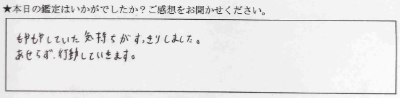 ★本日の鑑定はいかがでしたか？ご感想をお聞かせください。
もやもやしていた気持ちがすっきりしました。
あせらず、行動していきます。